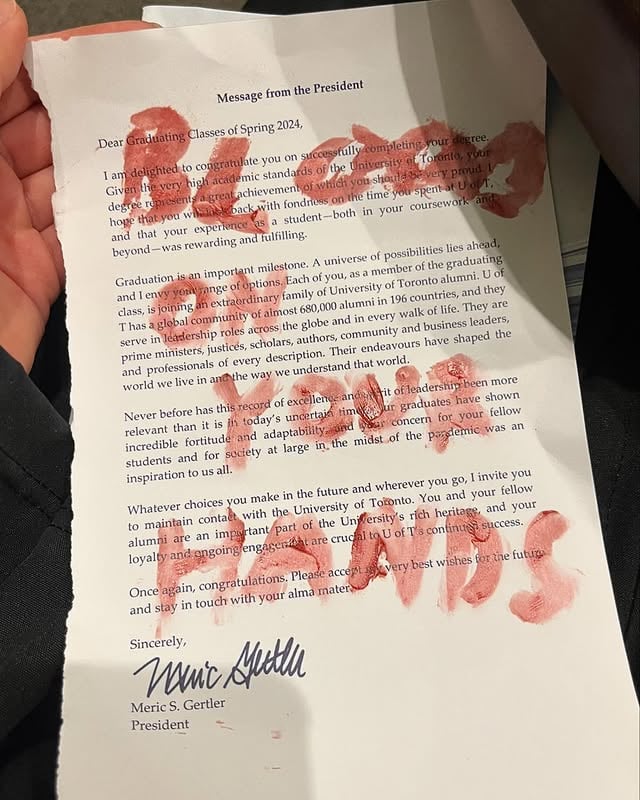 Message from the President
Dear Graduating Classes of Spring 2024,
I am delighted to congratulate you on successfully completing your degree.
Given the very high academic standards of the University of Toronto, your
degree represents a great achievement of which you should be very proud. I
hope that you will look back with fondness on the time you spent at U of T,
and that your experience as a student—both in your coursework and
beyond—was rewarding and fulfilling.
Graduation is an important milestone. A universe of possibilities lies ahead,
and I envy your range of options. Each of you, as a member of the graduating
class, is joining an extraordinary family of University of Toronto alumni. U of
T has a global community of almost 680,000 alumni in 196 countries, and they
serve in leadership roles across the globe and in every walk of life. They are
prime ministers, justices, scholars, authors, community and business leaders,
and professionals of every description. Their endeavours have shaped the
world we live in and the way we understand that world.
Never before has this record of excellence and spirit of leadership been more
relevant than it is in today's uncertain times. Our graduates have shown
incredible fortitude and adaptability, and concern for your fellow
students and for society at large in the midst of the pandemic was an
inspiration to us all.
Whatever choices you make in the future and wherever you go, I invite you
to maintain contact with the University of Toronto. You and your fellow
alumni are an important part of the University's rich heritage, and your
loyalty and ongoing engagement are crucial to U of T's continued success.
Once again, congratulations. Please accept my very best wishes for the future,
and stay in touch with your alma mater.
Sincerely,
Meric Gertler
Meric S. Gertler
President
BLOOD
ON
YOUR
HANDS